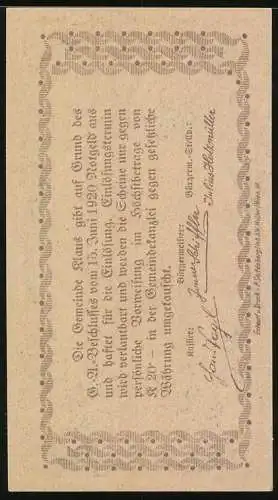 Die Gemeinde Klaus gibt auf Grund des
G.-A.-Beschlusses vom 15. Juni 1920 Notgeld aus
und haftet für die Einlösung. Einlösungstermin
wird verlautbart und werden die Scheine nur gegen
persönliche Vorweisung im Höchstbetrage von
K 20 – in der Gemeindekanzlei gegen gesetzliche
Währung umgetauscht.
Kassier: Bürgermeister: Bürgerm.-Stellv.:
Entwurf u. Druck: